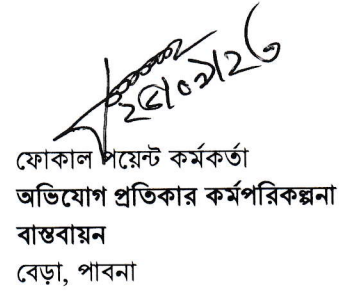 ফোকাল পয়েন্ট কর্মকর্তা
অভিযোগ প্রতিকার কর্মপরিকল্পনা
বাস্তবায়ন
বেড়া, পাবনা